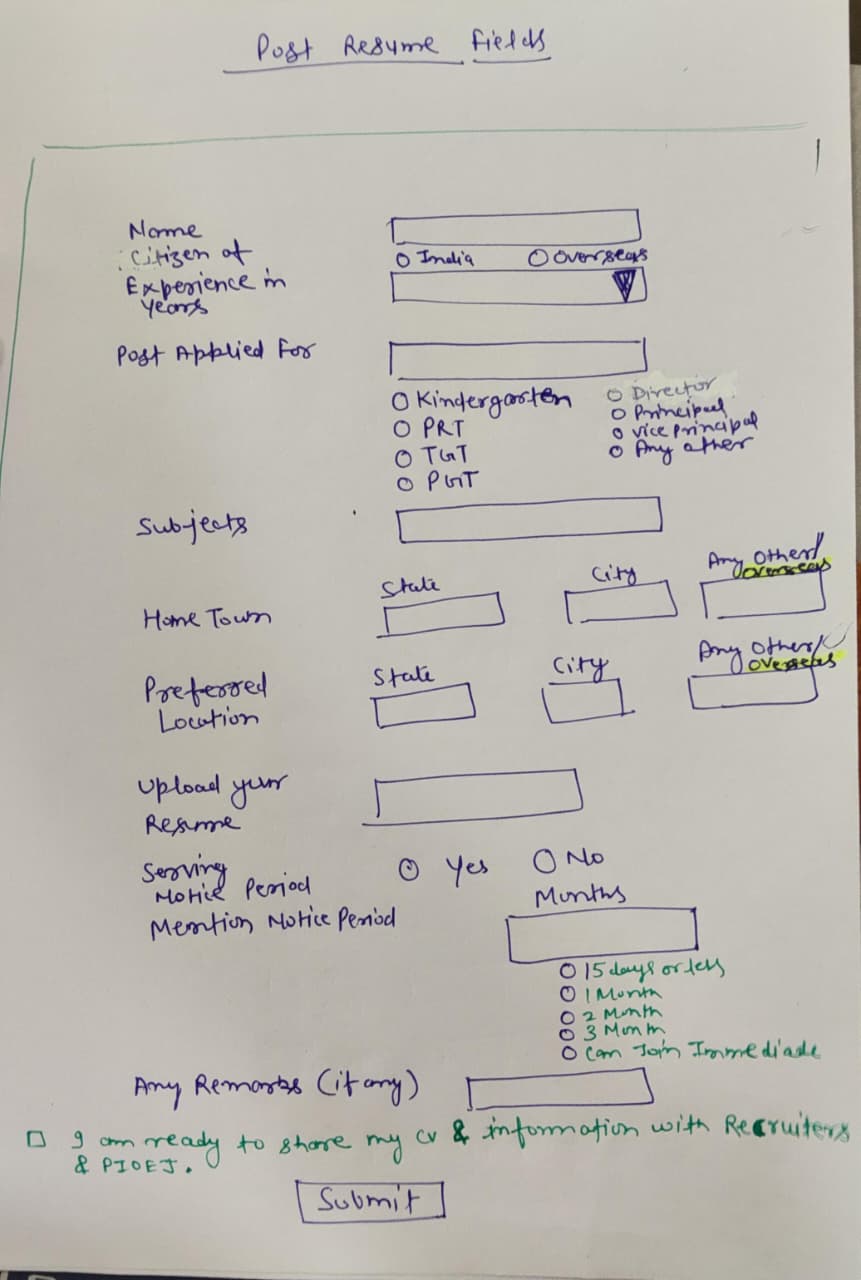 Post Resume Fields
Name
Citizen of
India Overseas
Experience in
Years
Post Applied For
Kindergarten Director
PRT Principal
TGT Vice Principal
PGT Any other
Subjects
State City Any Other/
Overseas
Home Town
State City Any Other/
Overseas
Preferred
Location
Upload your
Resume
Serving
Notice Period
Yes No
Months
Mention Notice Period
15 days or less
1 Month
2 Month
3 Month
Can Join Immediate
Any Remarks (if any)
I am ready to share my CV & information with Recruiters
&
Submit